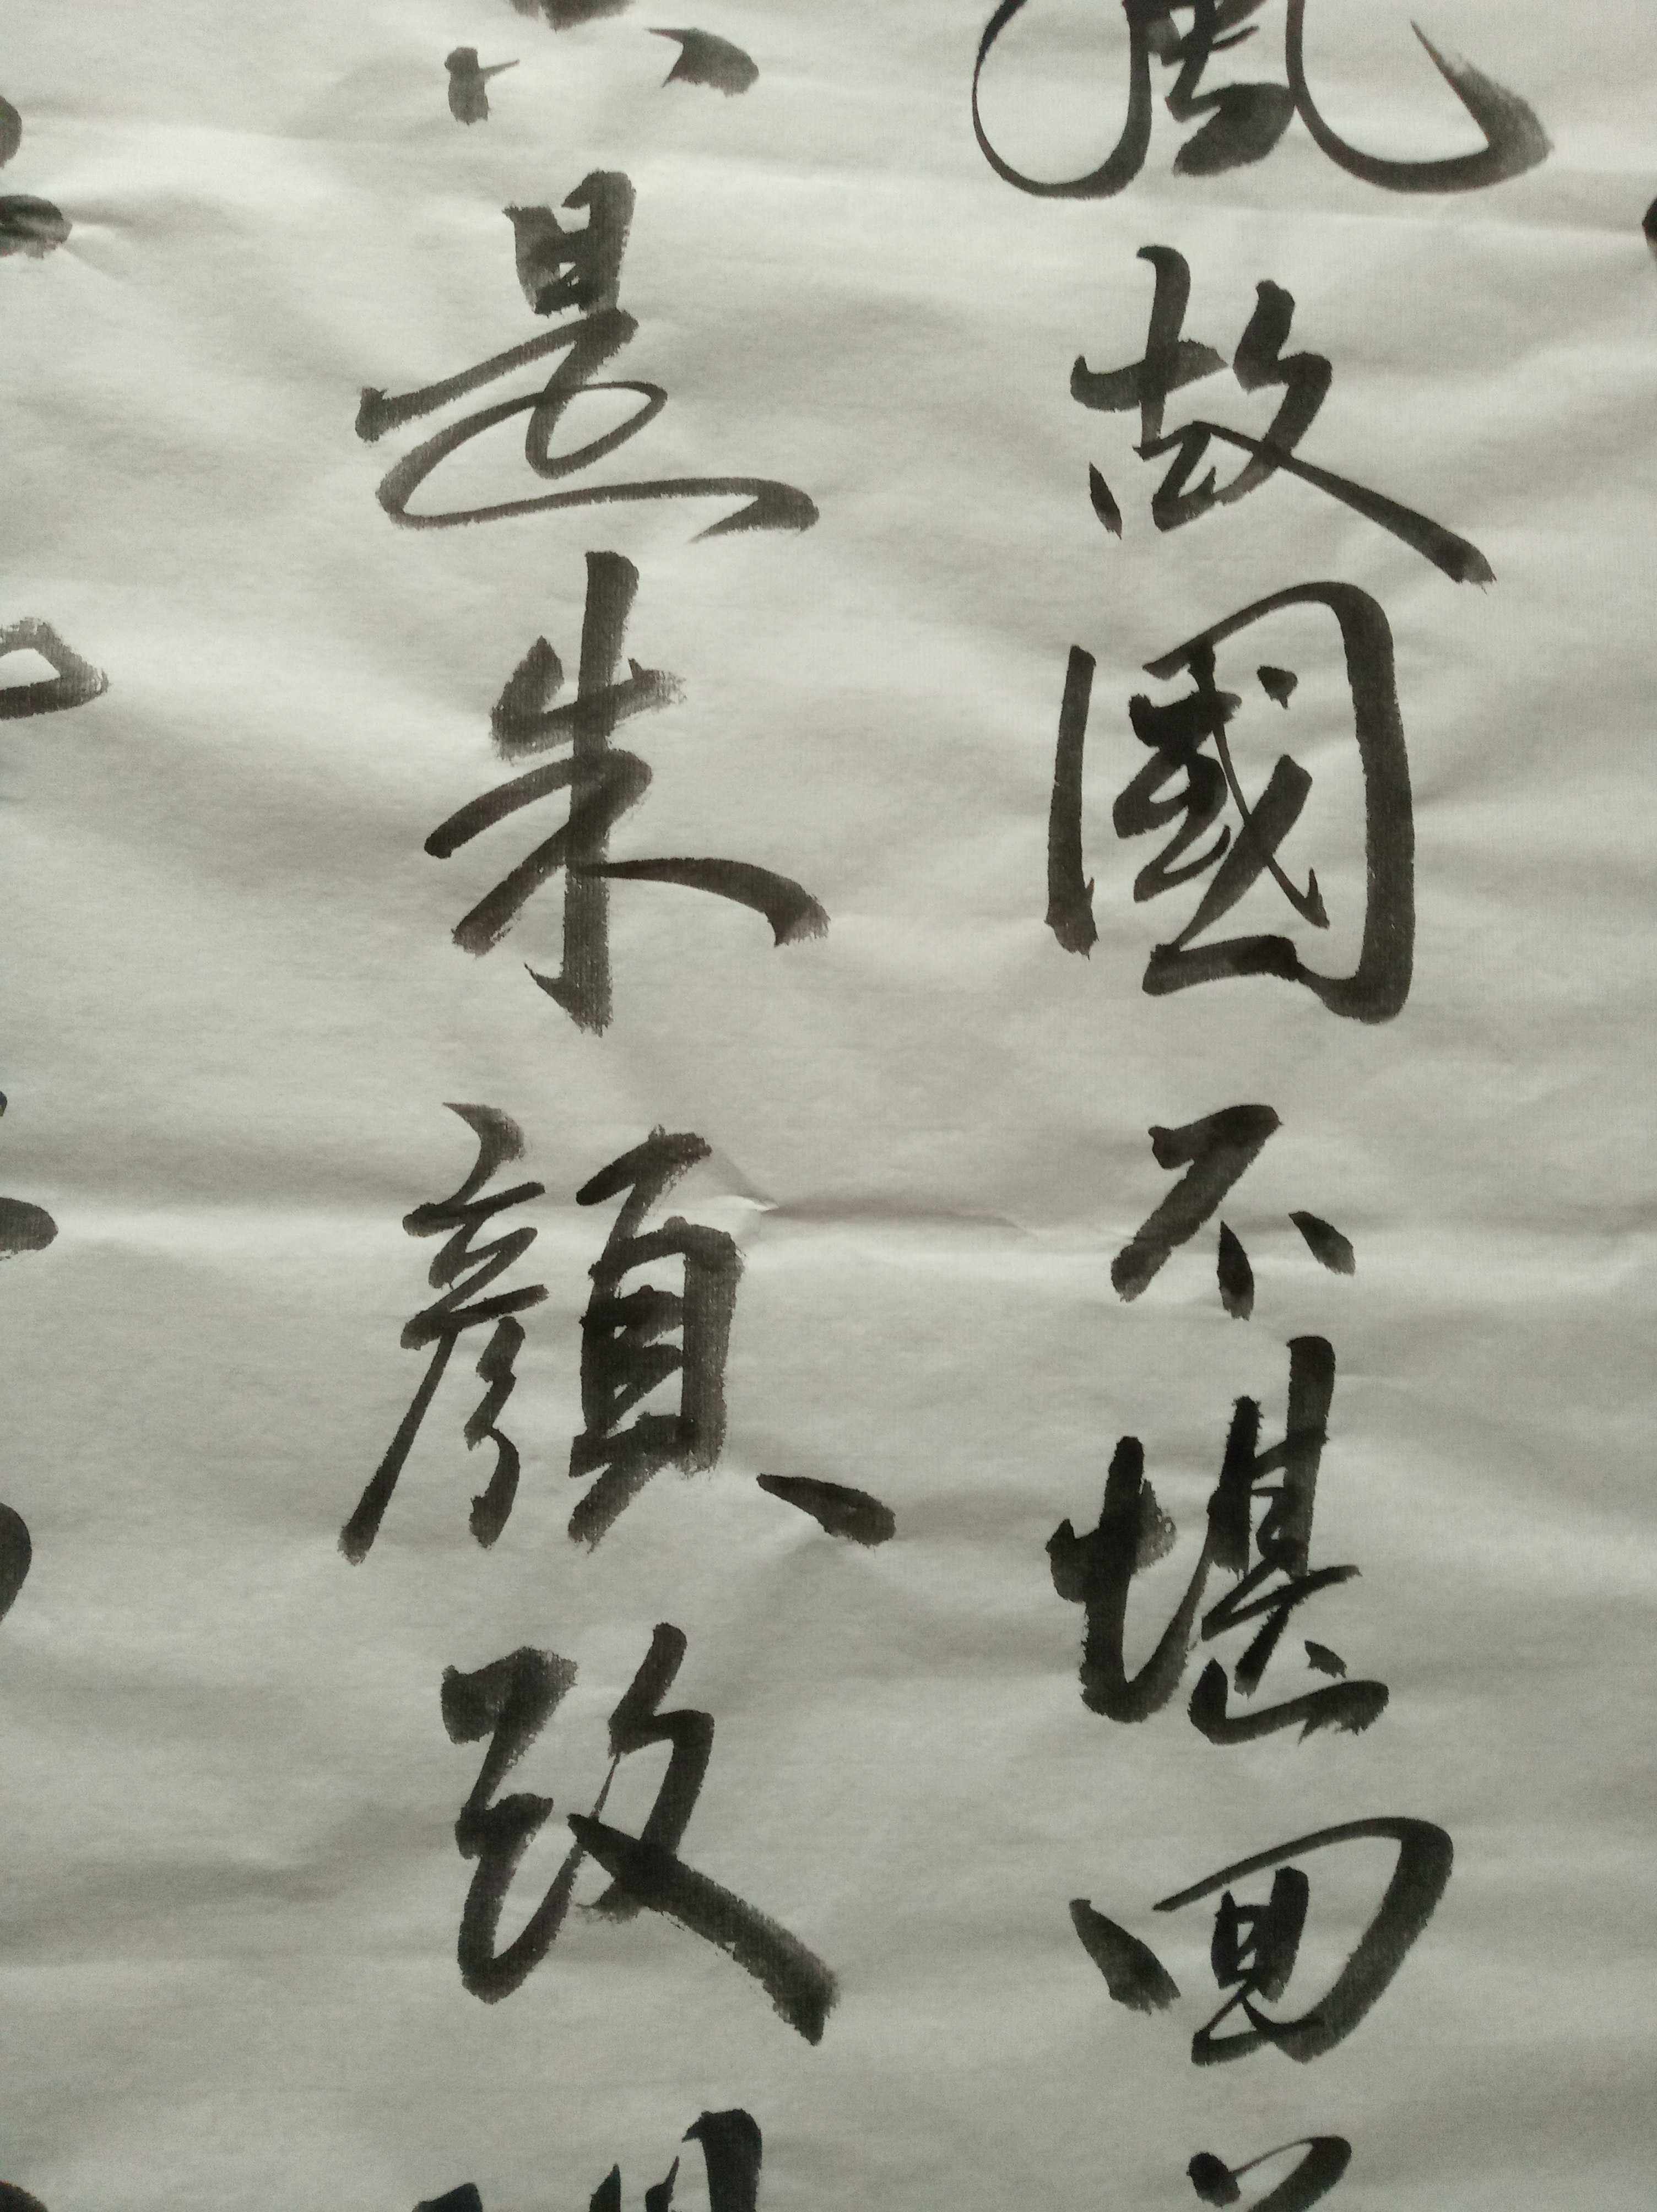 風故國不堪回
是朱顔改